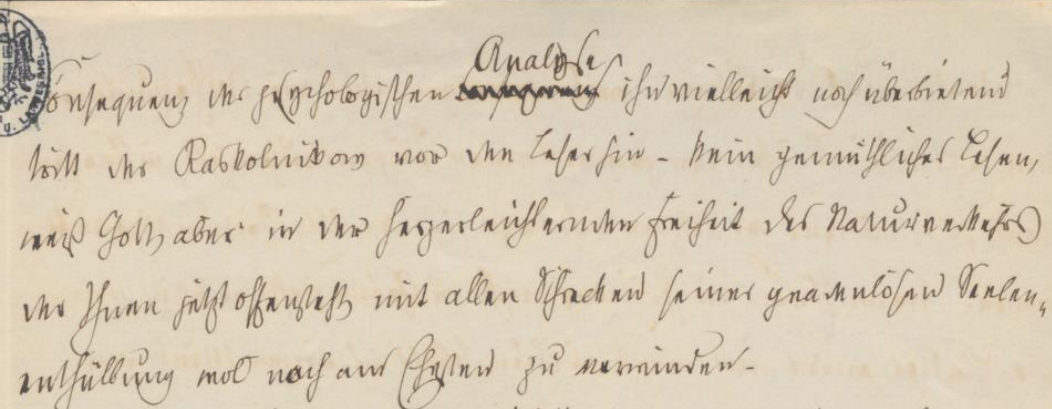 Analyse
Consequenz der psychologischen ihn vielleicht noch überbietend
tritt der Raskolnikow vor den Leser hin – kein gemüthliches Lesen,
weiß Gott, aber in der herzerleichternden Freiheit des Naturverkehrs
der Ihnen jetzt offensteht mit allen Schrecken seiner gnadenlosen Seelen„
enthüllung wol noch am Ehesten zu verwinden –